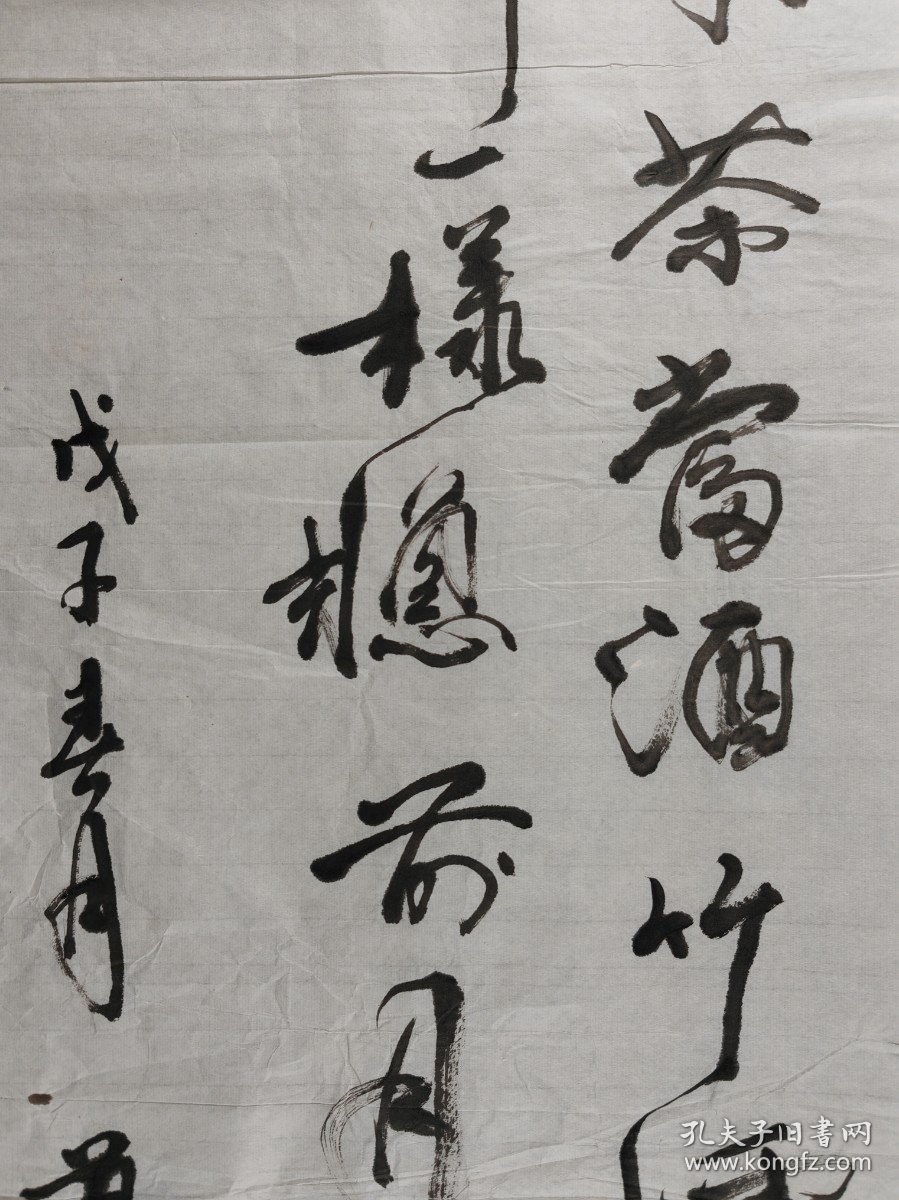 茶當酒竹
一樣窗前月
戊子春月
孔夫子旧书网
www.kongfz.com